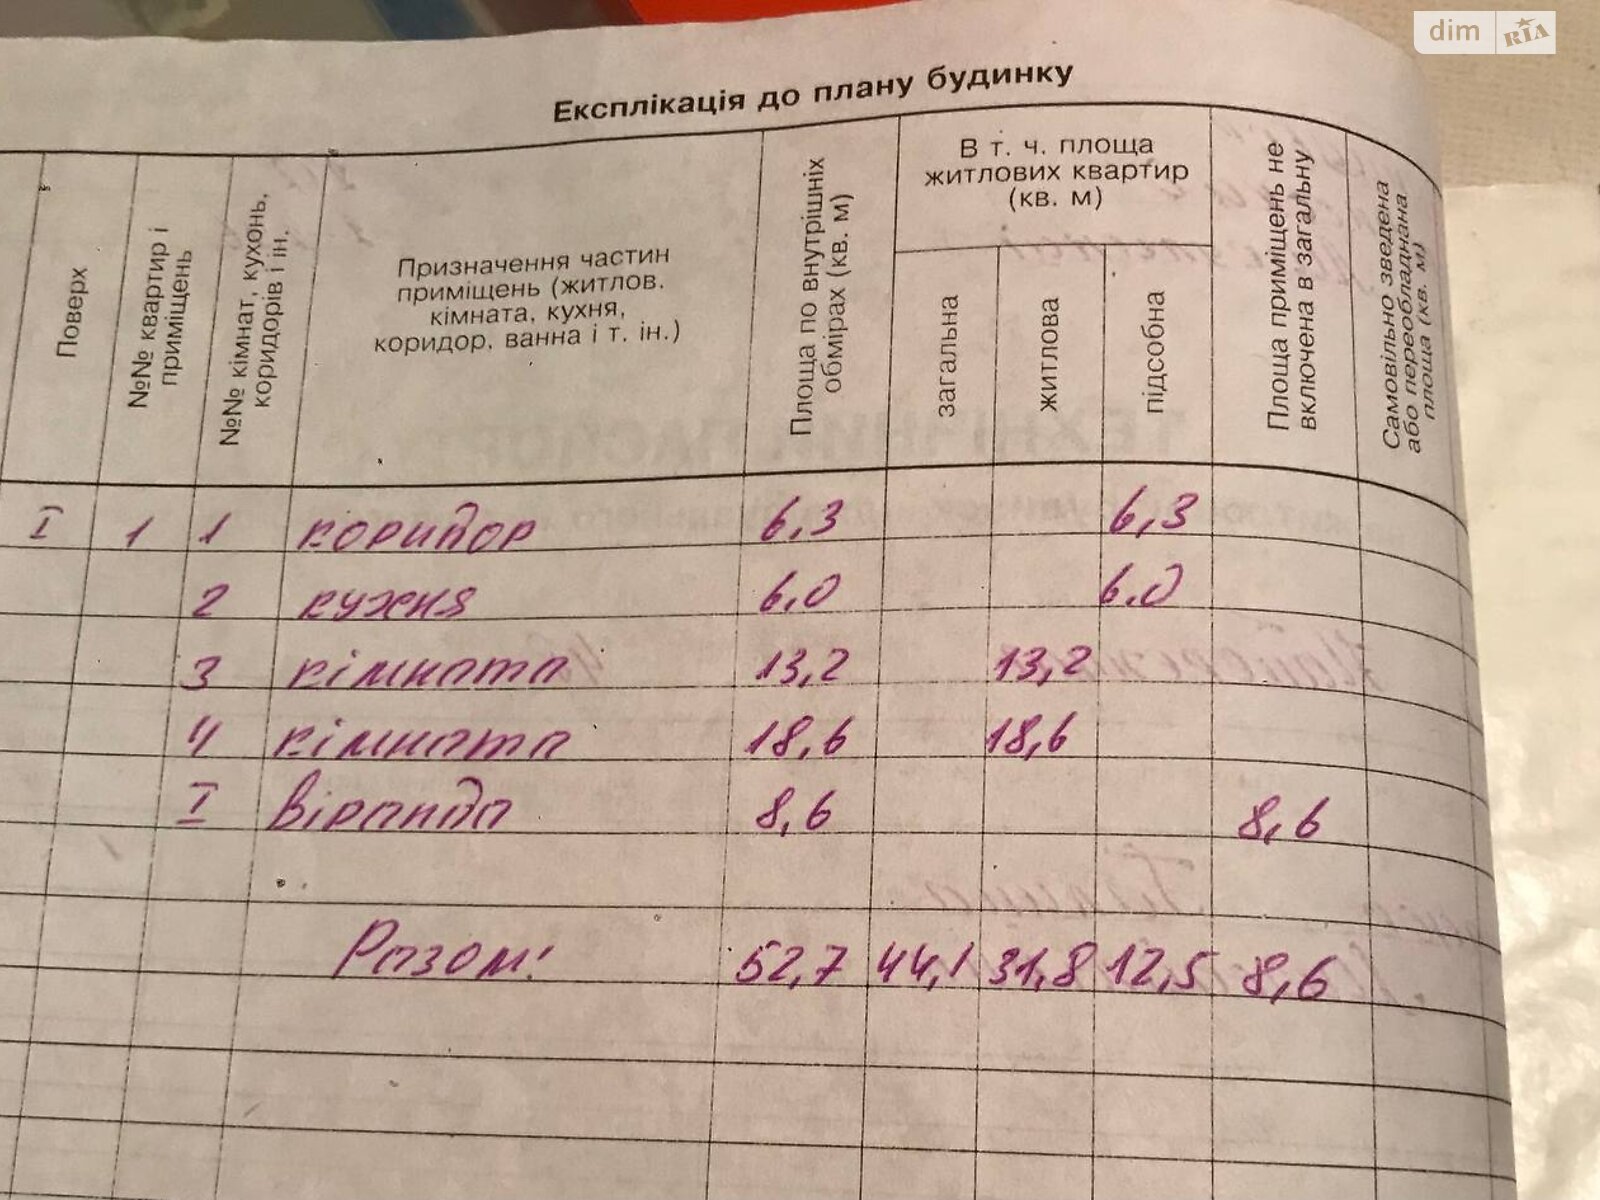 dim RIA
Експлікація до плану будинку
Поверх
№№ квартир і
приміщень
№№ кімнат, кухонь,
коридорів і ін.
Призначення частин
приміщень (житлов.
кімната, кухня,
коридор, ванна і т. ін.)
Площа по внутрішніх
обмірах (кв. м)
В т. ч. площа
житлових квартир
(кв. м)
загальна
житлова
підсобна
Площа приміщень не
включена в загальну
Самовільно зведена
або переобладнана
площа (кв. м)
I 1 1 коридор 6,3 6,3
2 кухня 6,0 6,0
3 кімната 13,2 13,2
4 кімната 18,6 18,6
I віранда 8,6 8,6
Разом: 52,7 44,1 31,8 12,5 8,6